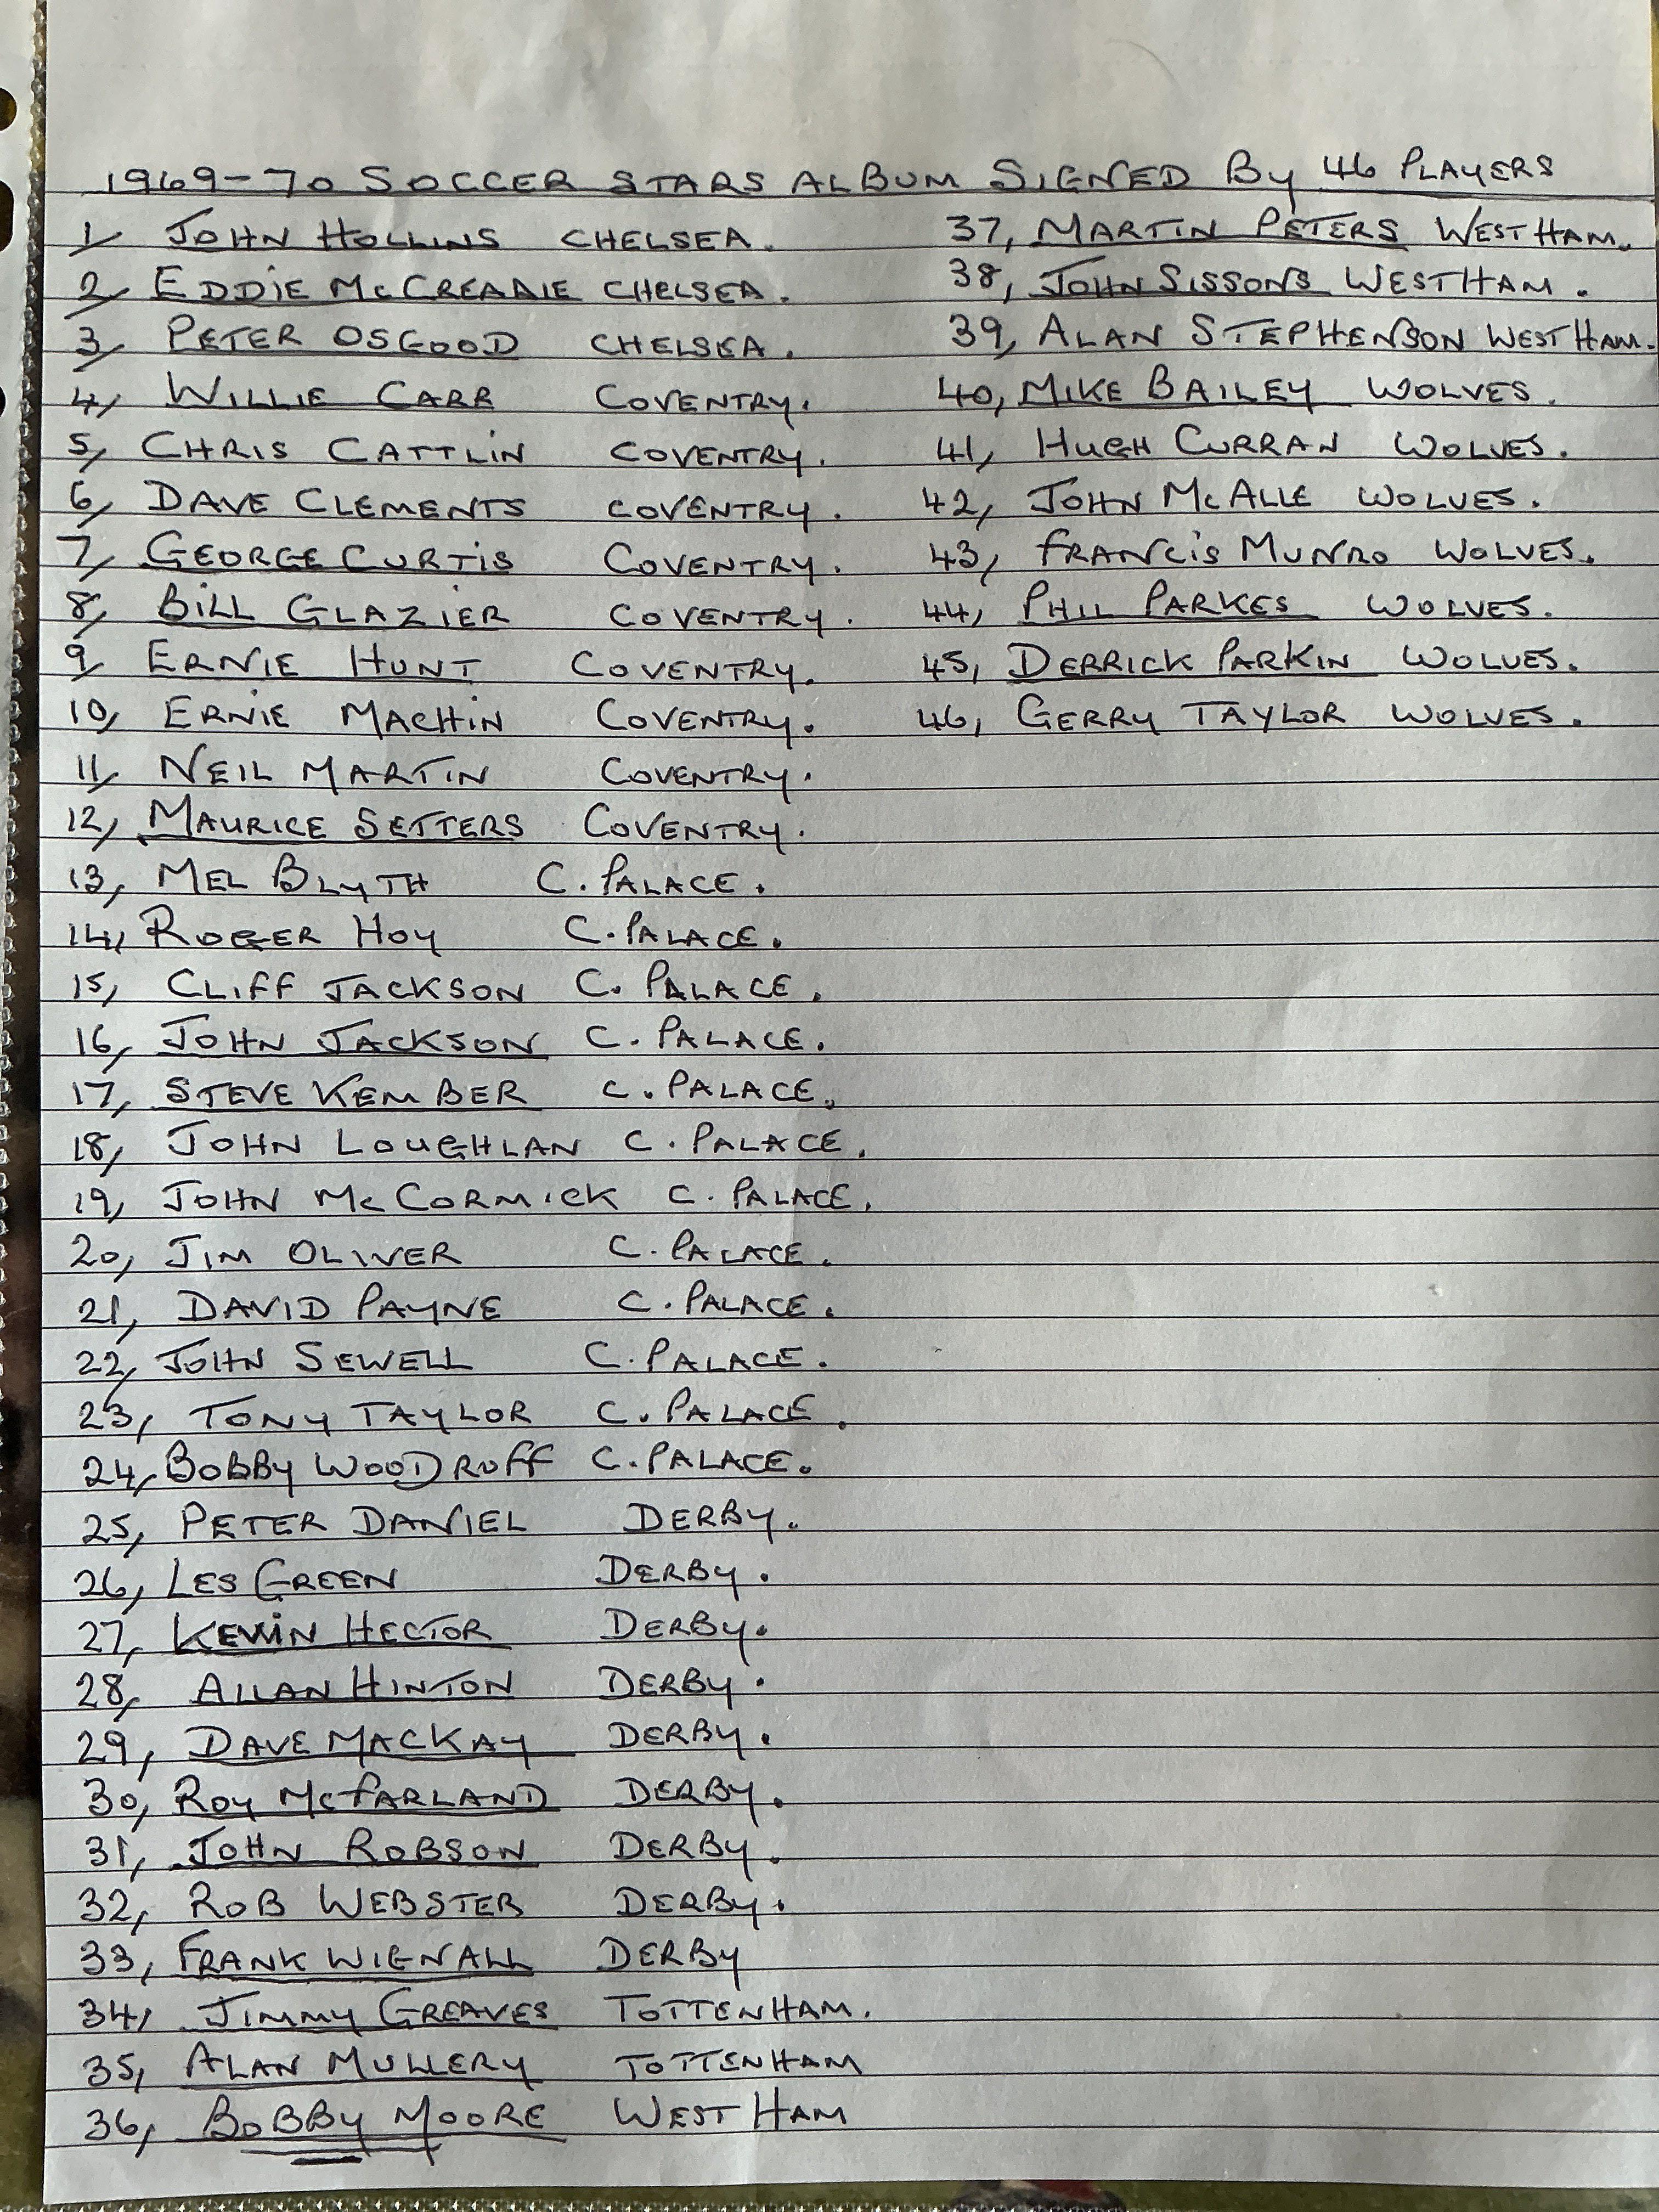 1969-70 SOCCER STARS ALBUM SIGNED By 46 PLAYERS
1, JOHN HOLLINS CHELSEA.
2, EDDIE McCREADIE CHELSEA.
3, PETER OSGOOD CHELSEA.
4, WILLIE CARR COVENTRY.
5, CHRIS CATTLIN COVENTRY.
6, DAVE CLEMENTS COVENTRY.
7, GEORGE CURTIS COVENTRY.
8, BILL GLAZIER COVENTRY.
9, ERNIE HUNT COVENTRY.
10, ERNIE MACHIN COVENTRY.
11, NEIL MARTIN COVENTRY.
12, MAURICE SETTERS COVENTRY.
13, MEL BLYTH C. PALACE.
14, ROGER HOY C. PALACE.
15, CLIFF JACKSON C. PALACE.
16, JOHN JACKSON C. PALACE.
17, STEVE KEMBER C. PALACE.
18, JOHN LOUGHLAN C. PALACE.
19, JOHN McCORMICK C. PALACE.
20, JIM OLIVER C. PALACE.
21, DAVID PAYNE C. PALACE.
22, JOHN SEWELL C. PALACE.
23, TONY TAYLOR C. PALACE.
24, BOBBY WOODRUFF C. PALACE.
25, PETER DANIEL DERBY.
26, LES GREEN DERBY.
27, KEVIN HECTOR DERBY.
28, ALLAN HINTON DERBY.
29, DAVE MACKAY DERBY.
30, ROY McFARLAND DERBY.
31, JOHN ROBSON DERBY.
32, ROB WEBSTER DERBY.
33, FRANK WIGNALL DERBY
34, JIMMY GREAVES TOTTENHAM.
35, ALAN MULLERY TOTTENHAM
36, BOBBY MOORE WEST HAM
37, MARTIN PETERS WEST HAM.
38, JOHN SISSONS WEST HAM.
39, ALAN STEPHENSON WEST HAM.
40, MIKE BAILEY WOLVES.
41, HUGH CURRAN WOLVES.
42, JOHN McALLE WOLVES.
43, FRANCIS MUNRO WOLVES.
44, PHIL PARKES WOLVES.
45, DERRICK PARKIN WOLVES.
46, GERRY TAYLOR WOLVES.